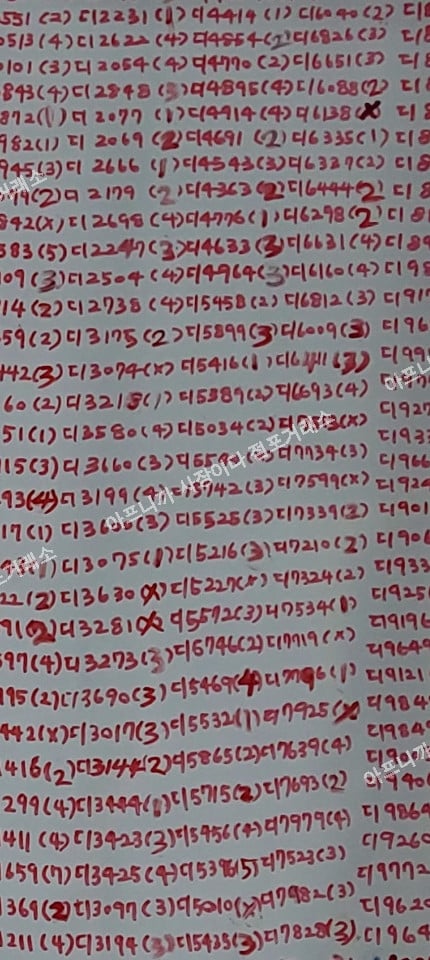 551 (2) 디2231 (1) 디4414 (1) 디6040 (2) 디8
0513 (4) 디2622 (4) 디4854 (2) 디6826 (3) 디8
0101 (3) 디2054 (4) 디4770 (2) 디6651 (3) 디8
843 (4) 디2848 (3) 디4895 (4) 디6088 (2) 디8
872 (1) 디2077 (1) 디4914 (4) 디6138 (x) 디8
982 (1) 디2069 (2) 디4691 (2) 디6335 (1) 디8
945 (3) 디2666 (1) 디4543 (3) 디6327 (2) 디8
(2) 디2179 (2) 디4363 (2) 디6444 (2) 디8
842 (x) 디2698 (4) 디4776 (1) 디6298 (2) 디8
583 (5) 디2247 (3) 디4633 (3) 디6631 (4) 디89
109 (3) 디2504 (4) 디4964 (3) 디6160 (4) 디98
14 (2) 디2738 (4) 디5458 (2) 디6812 (3) 디917
59 (2) 디3175 (2) 디5899 (3) 디6009 (3) 디96
442 (3) 디3074 (x) 디5416 (1) (3) 디99
60 (2) 디3215 (1) 디5389 (2) 디6693 (4)
51 (1) 디3580 (4) 디5034 (2) (x) 디927
15 (3) 디3660 (3) 디7734 (3) 디933
93 (4) 디3199 (4) 5742 (3) 디7599 (x) 디966
17 (1) 디3635 (3) 디5525 (3) 디7339 (2) 디924
(1) 디3075 (1) 디5216 (3) 디7210 (2) 디901
22 (2) 디3630 (x) 디5227 (x) 디7324 (2) 디906
91 (2) 디3281 (x) 디5572 (3) 디7534 (1) 디933
597 (4) 디3273 (3) 디5746 (2) 디7719 (x) 디925
195 (2) 디3690 (3) 디5469 (4) (1) 디9196
442 (x) 디3017 (3) 디5532 (1) 디7925 (x) 디9649
416 (2) 디3144 (2) 디5865 (2) 디7639 (4) 디9121
299 (4) 디3444 (1) 디5715 (2) 디7693 (2) 디984
411 (4) 디3423 (3) 디5456 (4) 디7979 (4) 디984
659 (7) 디3425 (4) (5) 디7523 (3) 디9864
369 (2) 디3097 (3) 디5010 (x) 디7982 (3) 디9260
211 (4) 디3194 (3) 디5435 (3) 디7828 (3) 디9772
디9620
디964
아프니까 사장이다 점포거래소